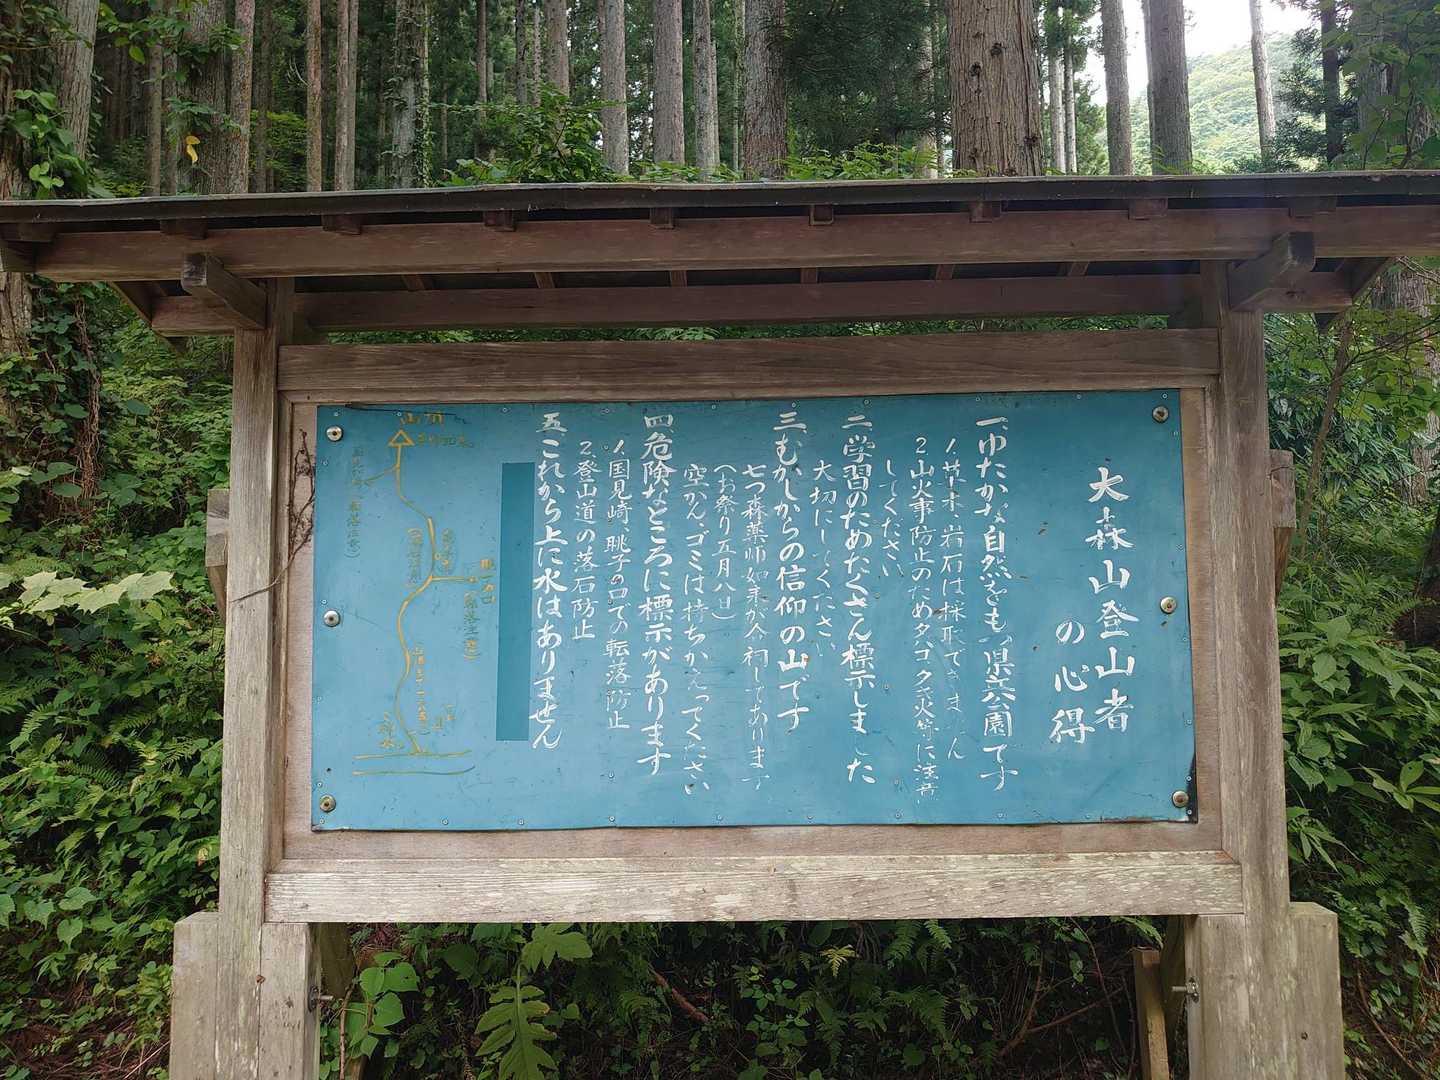 大森山登山者
の心得
一、ゆたかな自然をもつ県立公園です
1.草木、岩石は採取できません
2.山火事防止のためタバコ、タキ火等に注意
してください
二、学習のためたくさん標示しました
大切にしてください
三、むかしからの信仰の山です
七つ森薬師如来が合祠してあります
(お祭り五月八日)
空かん、ゴミは持ちかえってください
四、危険なところに標示があります
1.国見崎、眺子の口での転落防止
2.登山道の落石防止
五、これから上に水はありません
山頂